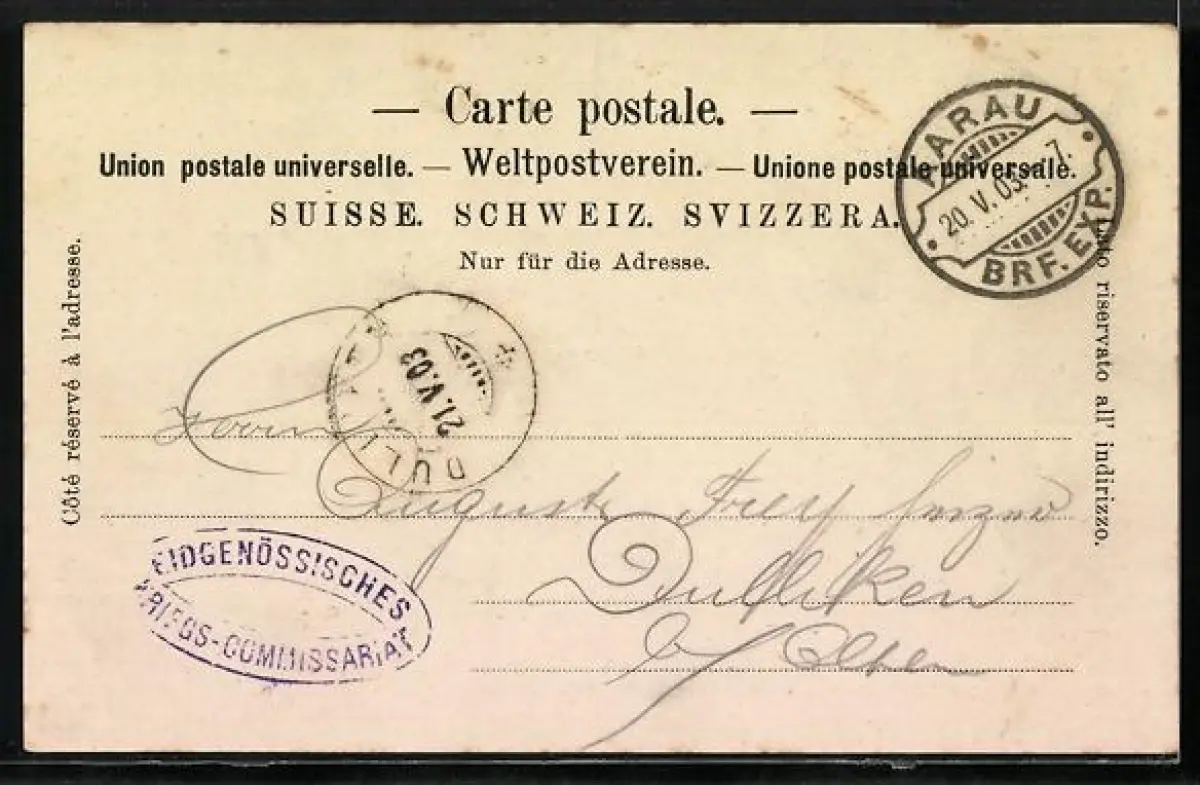 — Carte postale. —
Union postale universelle. — Weltpostverein. — Unione postale universale.
SUISSE. SCHWEIZ. SVIZZERA.
Nur für die Adresse.
Côté réservé à l'adresse.
Lato riservato all' indirizzo.
AARAU
20. V. 03. - 7.
BRF. EXP.
21. V. 03
Herrn
August Frey
Dulliken
b/ Olten
EIDGENÖSSISCHES
KRIEGS-COMMISSARIAT